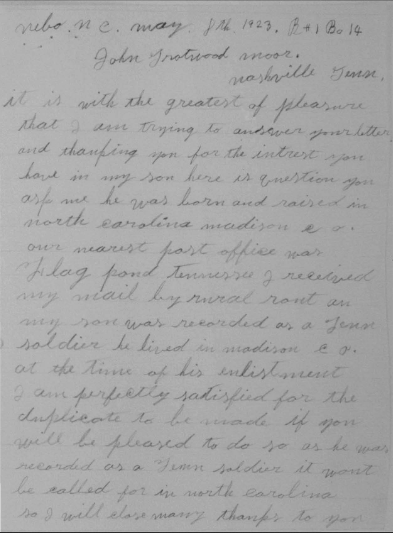 nebo. N C. may. 8th. 1923. R#1 Bo 14
John Trotwood moor.
nashville Tenn.
it is with the greatest of pleasure
that I am trying to andswer your letter
and thanking you for the intrest you
have in my son here is question you
ask me he was born and raised in
north carolina madison c o.
our nearest post office was
Flag pond tennessee I received
my mail by rural rout an
my son was recorded as a Tenn
soldier he lived in madison c o.
at the time of his enlistment
I am perfectly satisfied for the
duplicate to be made if you
will be pleased to do so as he was
recorded as a Tenn soldier it wont
be called for in north carolina
so I will close many thanks to you